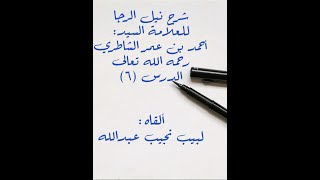 شرح نيل الرجا
للعلامة السيد:
أحمد بن عمر الشاطري
رحمه الله تعالى
الدرس (٦)
ألقاه:
لبيب نجيب عبدالله